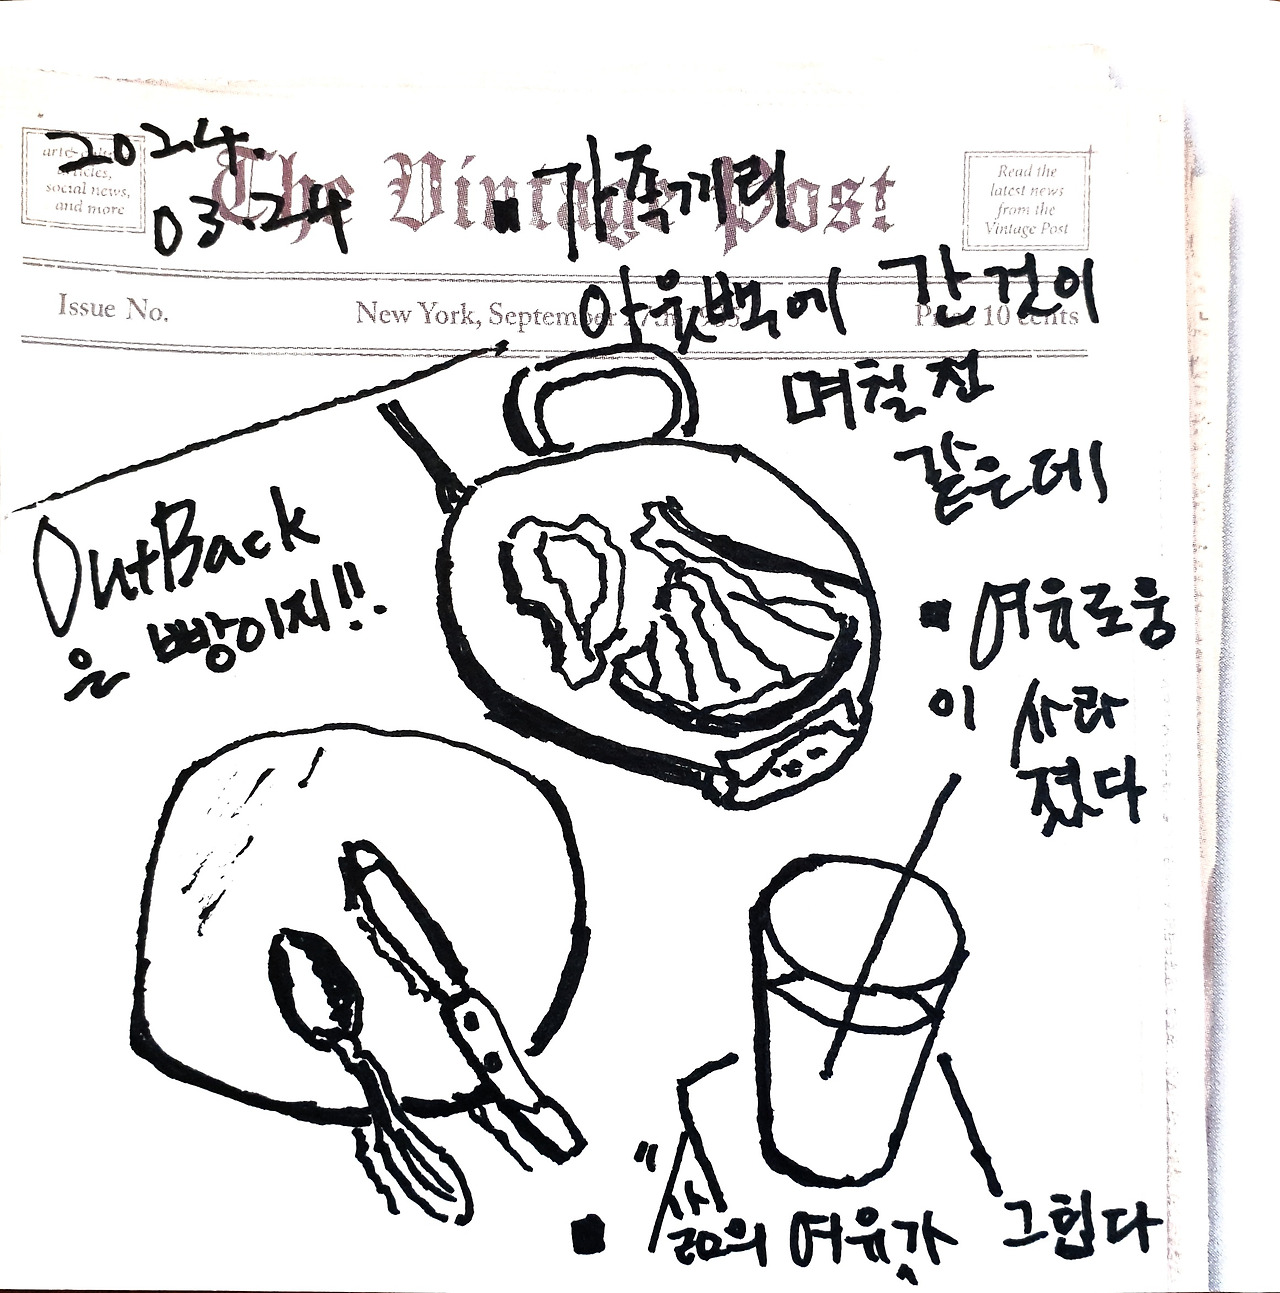 2024.
03.24
arts, 
articles,
social news,
and more
The Vintage Post
Read the
latest news
from the
Vintage Post
Issue No.
New York, September 27th
Price 10 cents
■ 가족끼리
아웃백에 간 것이
며칠 전
같은데
OutBack
은 빵이지!!.
■ 여유로움
이 사라
졌다
■ "삶의 여유가 그립다